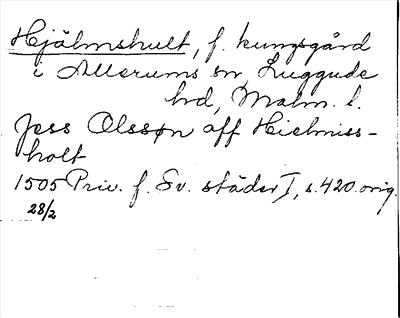 Hjälmshult, f. kungsgård
i Allerums sn, Luggude
hd, Malm. l.
Jess Olssøn aff Hielmiss-
holt
1505 Priv. f. Sv. städer I, s. 420. orig.
28/2